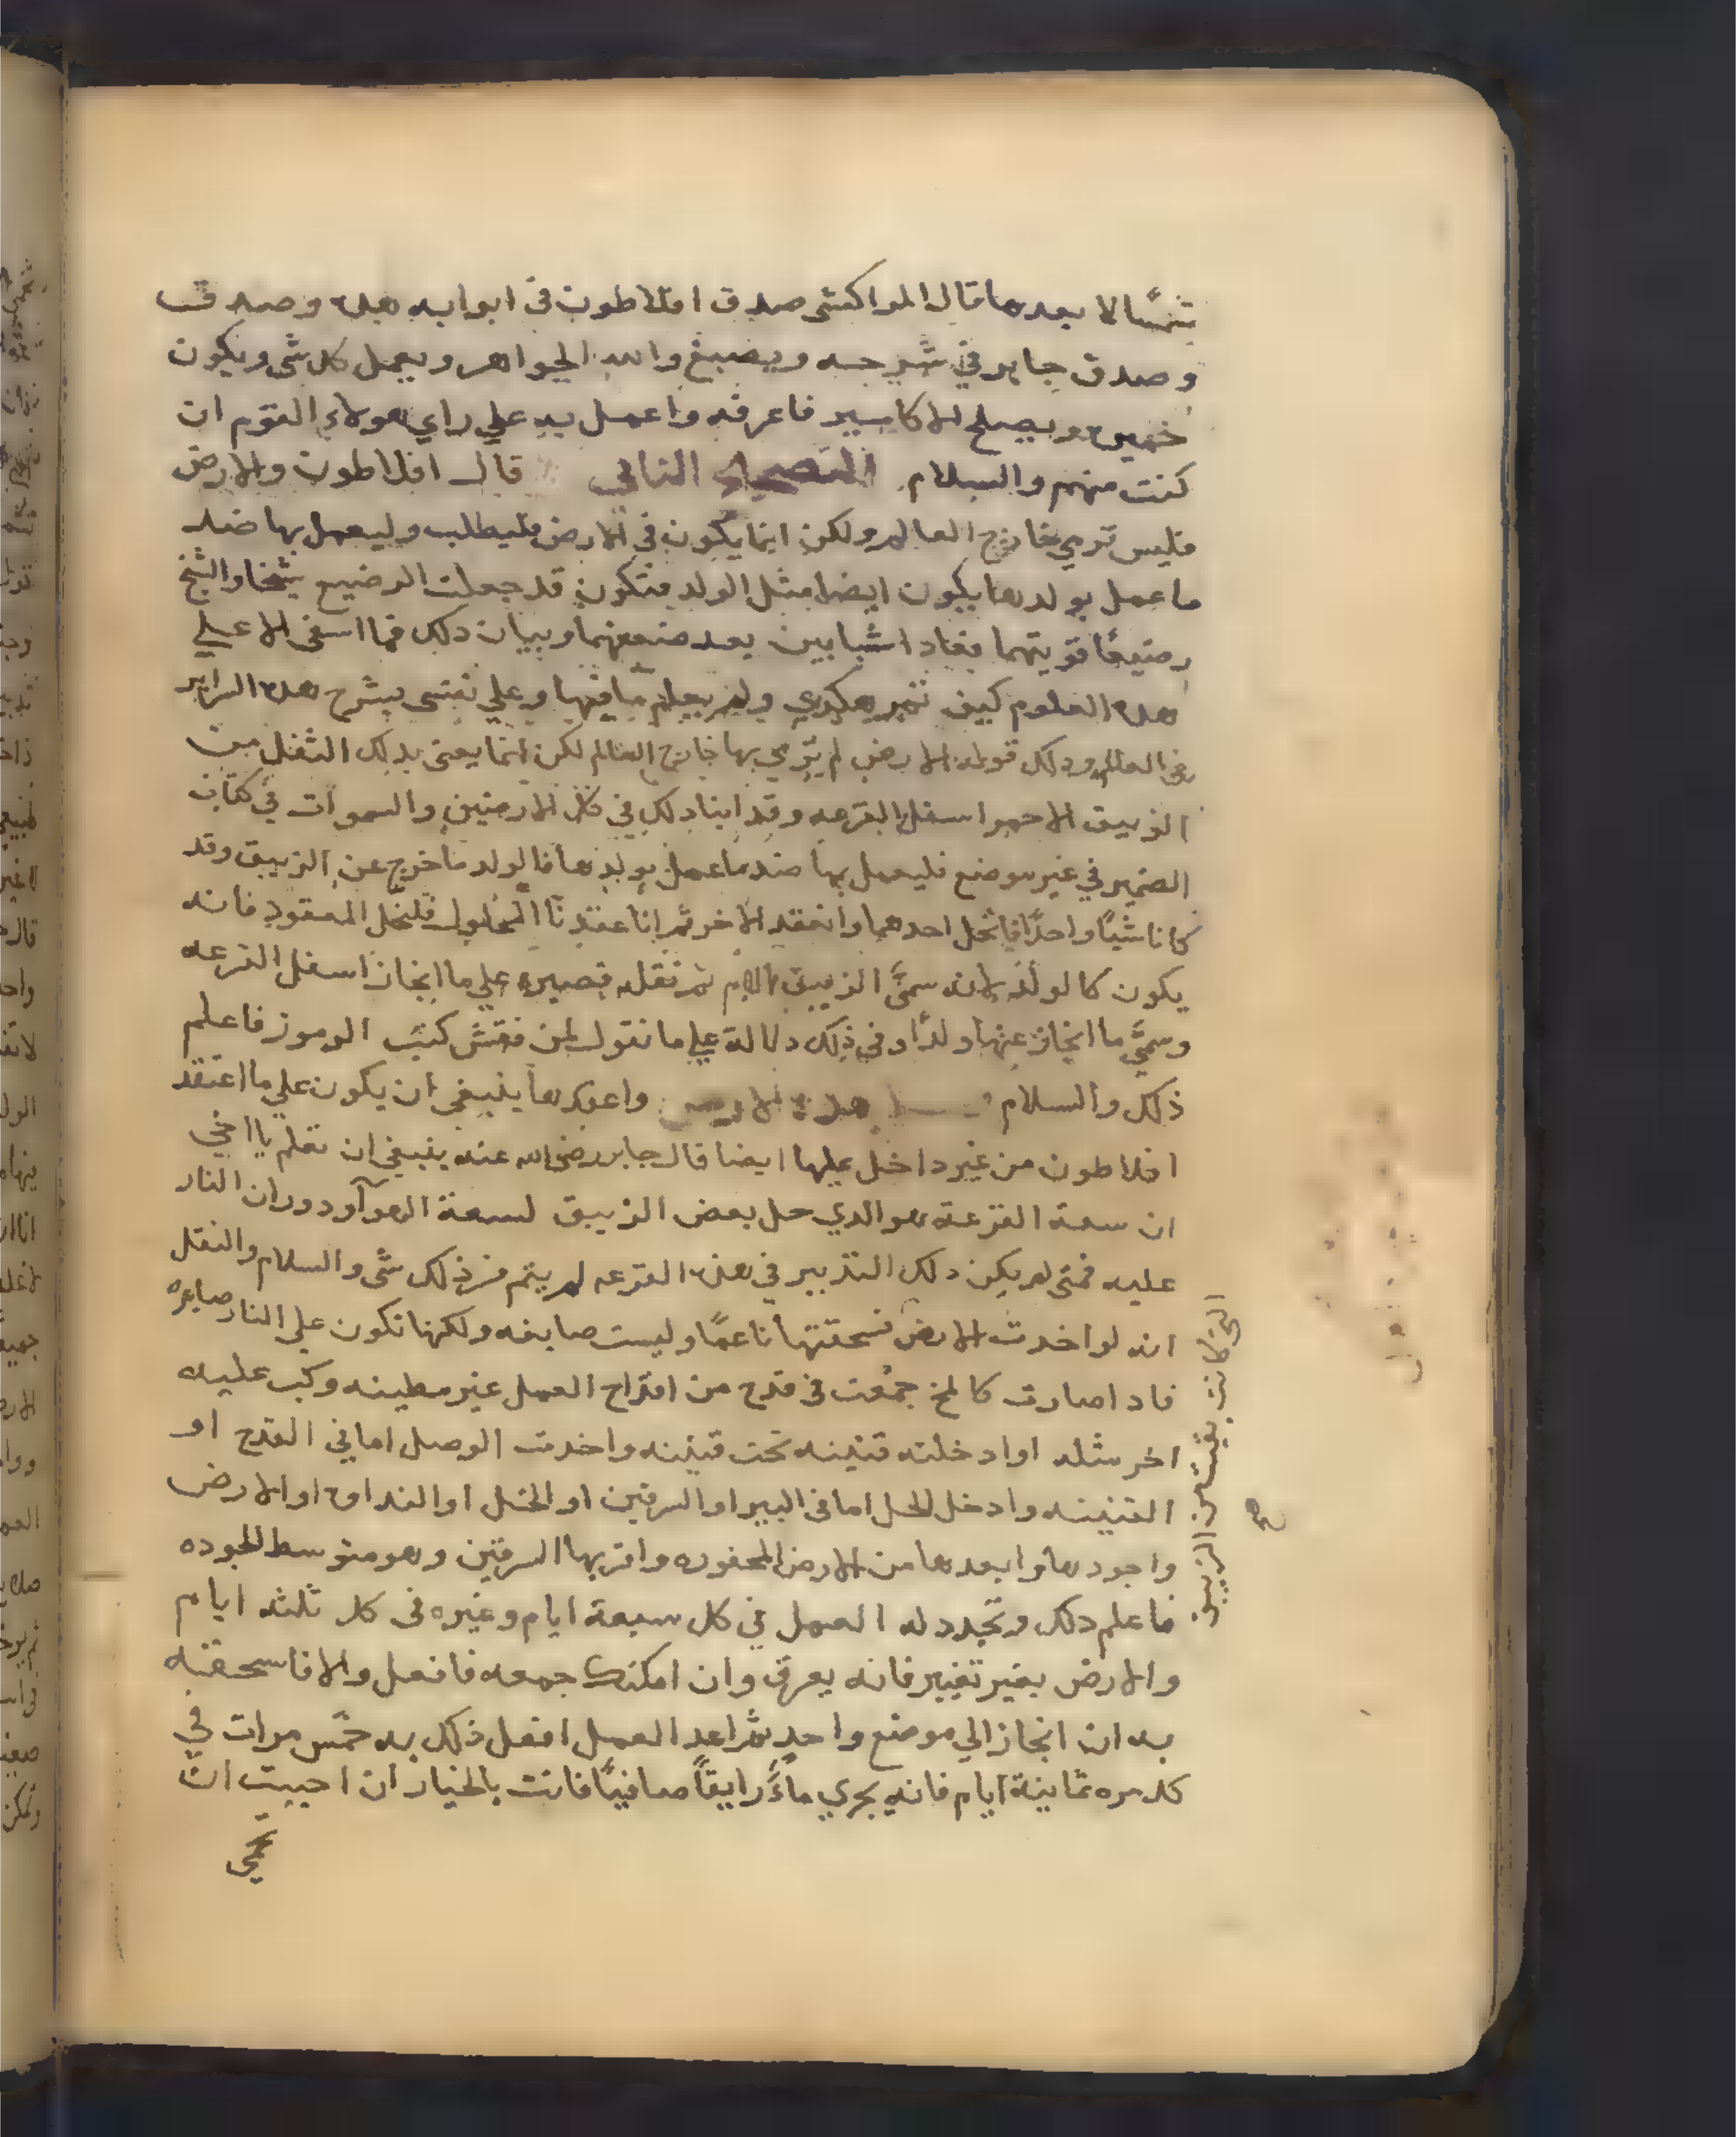 شيئا الا بعدها قال المراكشي صدق افلاطون في ابوابه هذه وصدق
وصدق جابر في شرحه ويصبغ والله الجواهر ويعمل كل شي ويكون
خميره ويصلح الاكاسير فاعرفه واعمل به علي راي هولاء القوم ان
كنت منهم والسلام التصحيح الثاني قال افلاطون والارض
فليس ترمي خارج العالم ولكن انما يكون في الارض فليطلب وليعمل بها ضد
ما عمل بولدها يكون ايضا مثل الولد فتكون قد جعلت الرضيع شيخا والشيخ
رضيعًا قويتهما فعادا شبابين بعد ضعفهما وبيان دلك فما اسفى الا علي
هده العلوم كيف تمر هكدي ولم يعلم ما فيها وعلي نفسى بشرح هده السراير
في العالم ودلك قوله الارض لم يرمي بها خارج العالم لكن انما يعنى بدلك الثفل من
الزيبق الاحمر اسفل القرعه وقد ابنا دلك في كل الارضين والسموات في كتاب
الضمير في غير موضع فليعمل بها ضد ما عمل بولدها فالولد ما خرج عن الزيبق وقد
كانا شيًا واحدًا فانحل احدهما وانعقد الاخر ثم انا عقدنا المحلول فلنحل المعقود فانه
يكون كالولد لانه سمَّى الزيبق بالام ثم نقله فصيره علي ما انحاز اسفل القرعه
وسمَّي ما انحاز عنها ولدًا وفي ذلك دلالة علي ما نقول لمن فتش كتب الرموز فاعلم
ذلك والسلام هدة الارض واعد ها ينبغي ان يكون علي ما اعتقد
افلاطون من غير داخل عليها ايضا قال جابر رضى الله عنه ينبغي ان تعلم يا اخي
ان سعة القرعة هو الدي حل بعض الزيبق لسعة الهوآ ودوران النار
عليه فمتى لم يكن دلك التدبير في هذه القرعه لم يتم من ذلك شي والسلام والثفل
انه لو اخدت الارض فسحقتها ناعمًا وليست صابغه ولكنها تكون علي النار صابره
فادا صارت كالمخ جمعت في قدح من اقداح العمل غير مطينه وكب عليه
اخر مثله او ادخلته قنينه تحت قنينه واخدت الوصل اما في القدح او
القنينه وادخل للحل اما في البير او السرقين او الخل او النداوه او الارض
واجودها وابعدها من الارض المحفوره واقربها السرقين وهو متوسط الجوده
فاعلم دلك وتجدد له العمل في كل سبعة ايام وغيره في كل ثلثه ايام
والارض بغير تغيير فانه يعرق وان امكنك جمعه فافعل والا فاسحقنه
به ان انحاز الي موضع واحد ثم اعد العمل افعل ذلك به خمس مرات في
كل مره ثمانية ايام فانه يجري ماءً رايقًا صافيًا فانت بالخيار ان احببت ان